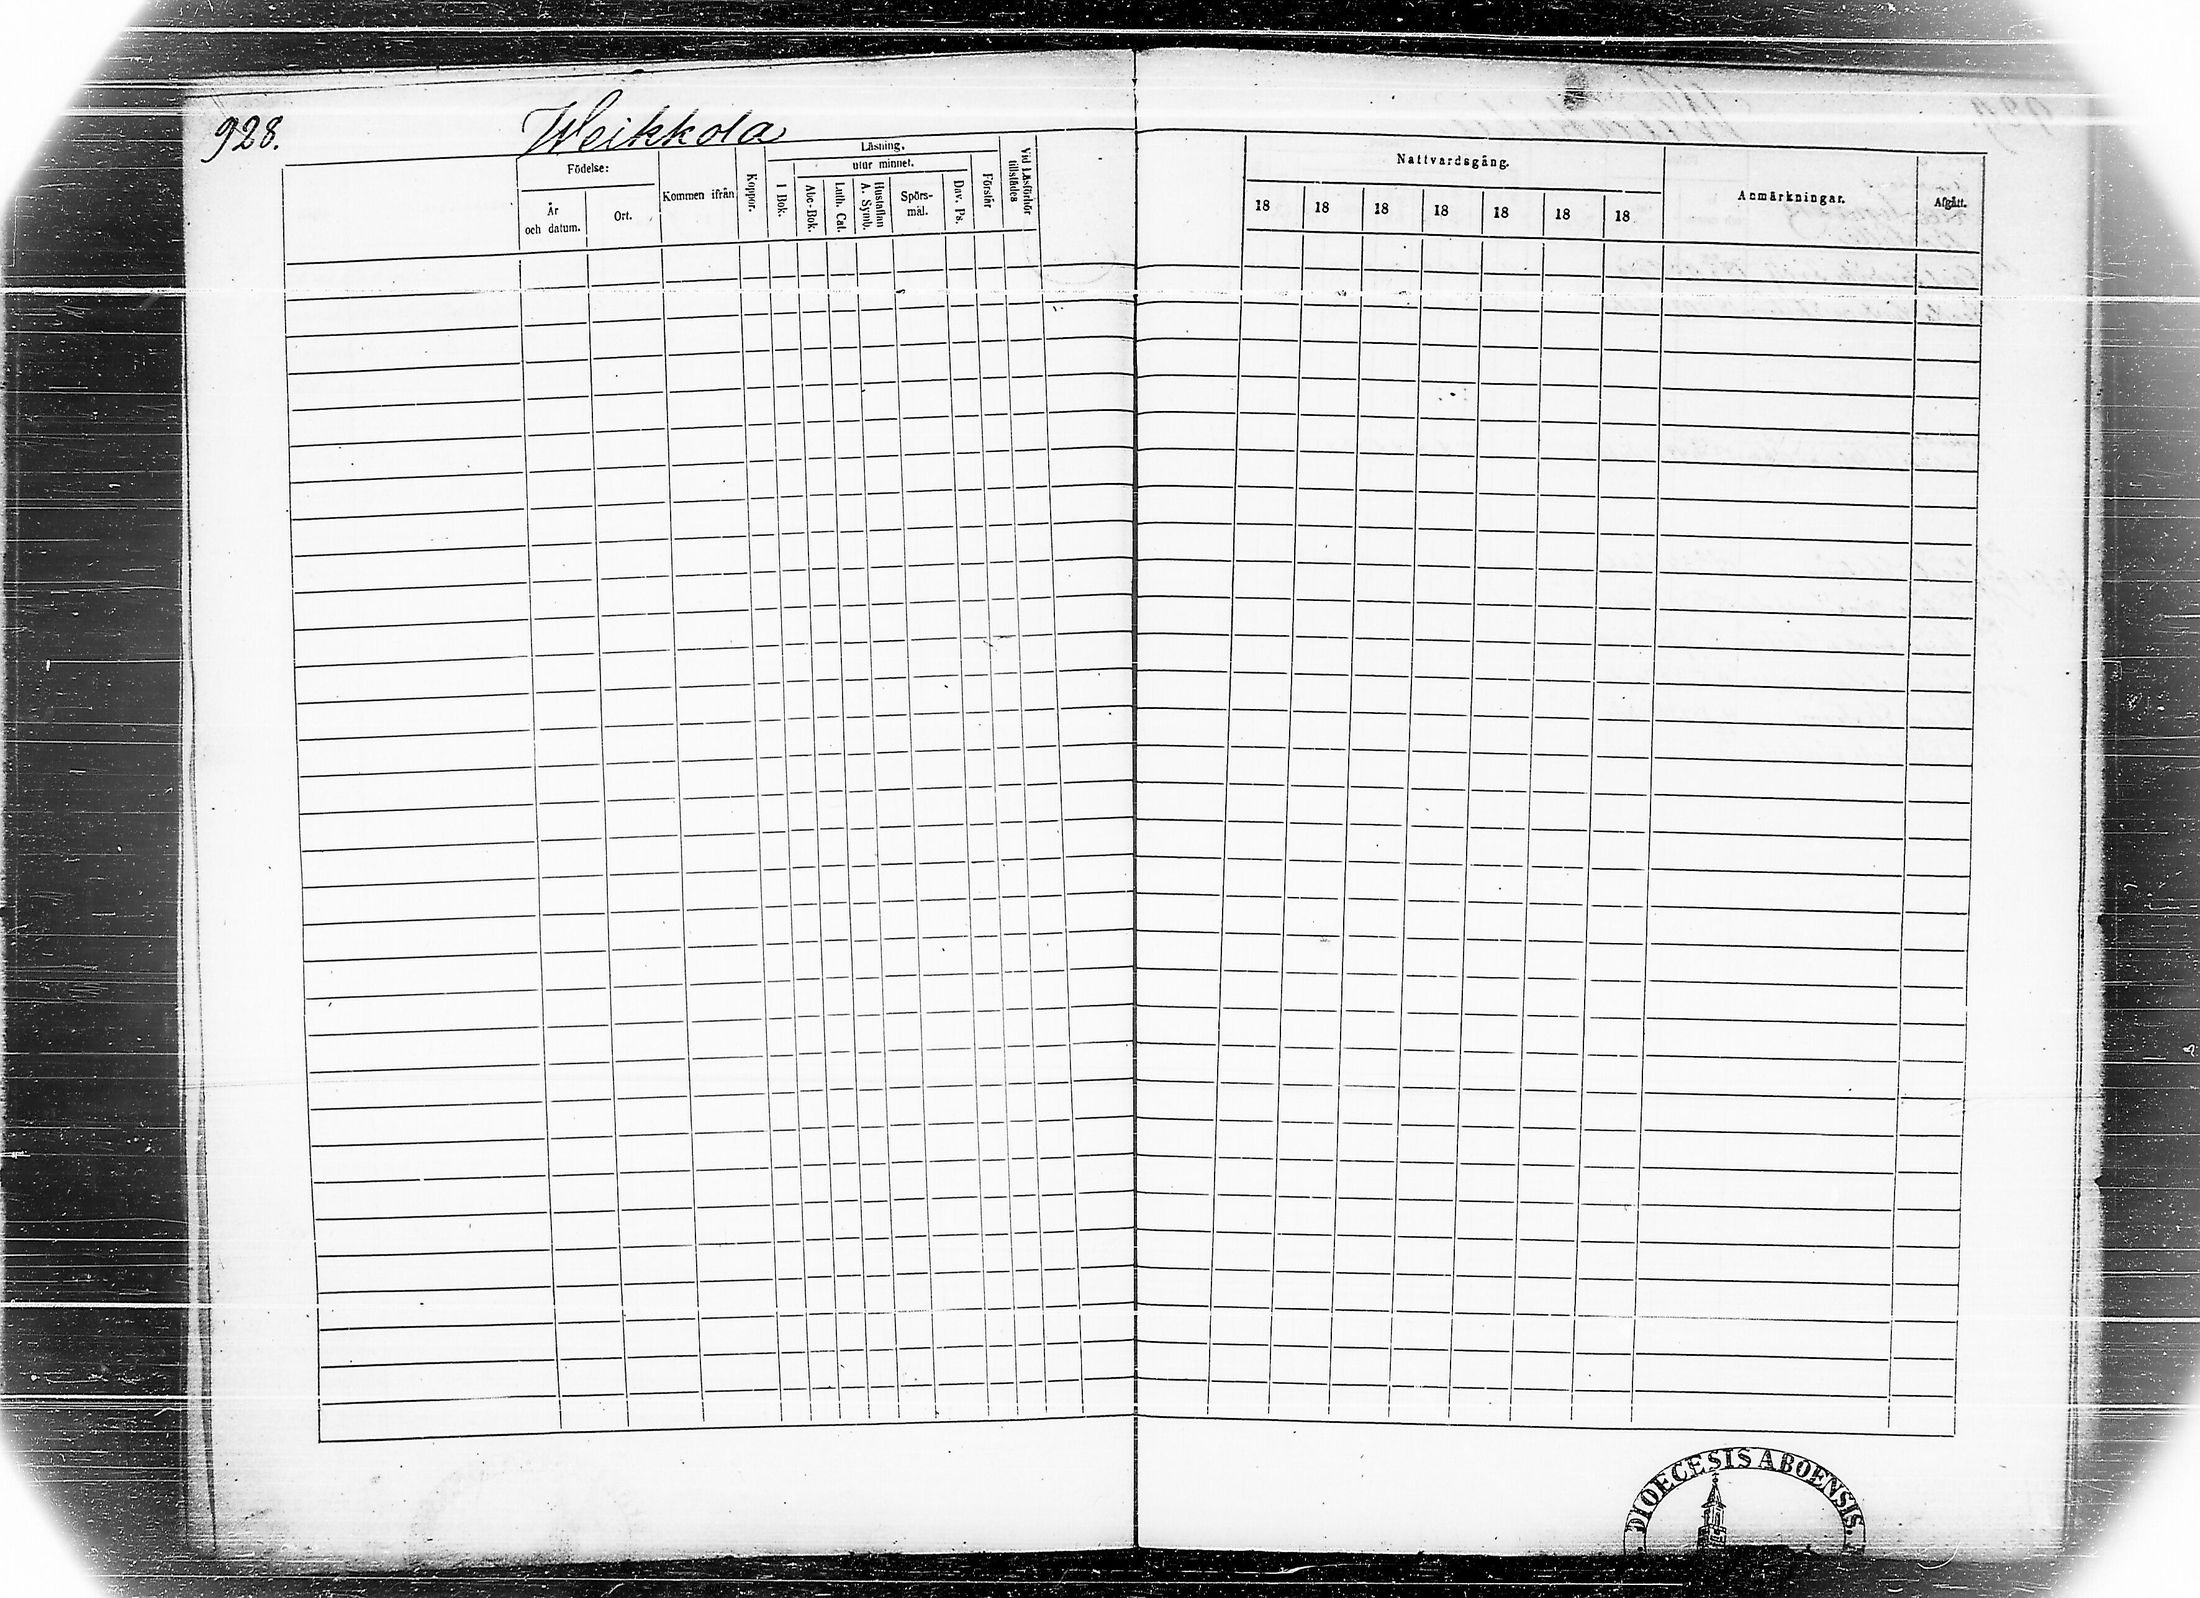 928.
Weikkola
Födelse:
År
och datum.
Ort.
Kommen ifrån
Koppor.
Läsning.
utur minnet.
I Bok.
Abc-Bok.
Luth. Cat.
Hustaflan
A. Symb.
Spörs-
mål.
Dav. Ps.
Förstår
Vid Läsförhör
tillstädes
Nattvardsgång.
18 18 18 18 18 18 18
Anmärkningar.
Afgått.
DIOECESIS ABOENSIS.